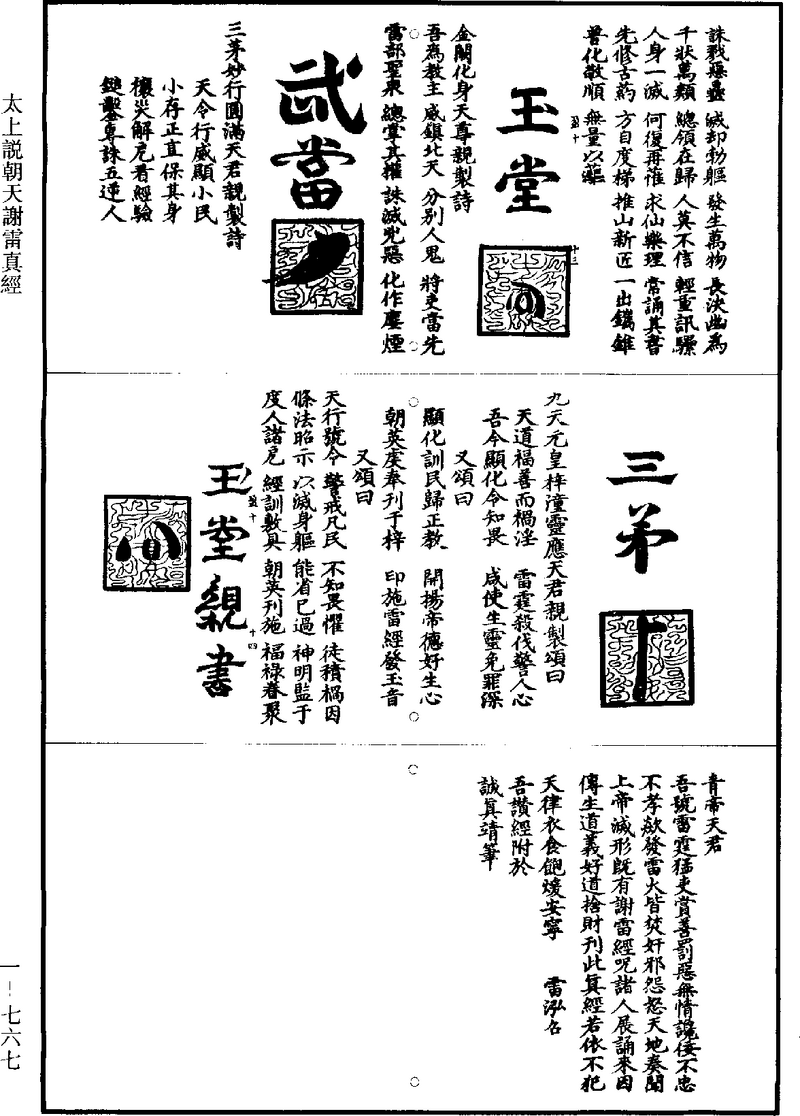 誅戮惡蠹　滅却勃軀　發生萬物　長決幽為
千狀萬類　總領在歸　人莫不信　輕重訊驟
人身一滅　何復再萑　求仙樂理　常誦其書
先修古藥　方自度梯　推山新匠　一出鐫錐
普化敬順　無量以軀
玉堂
金闕化身天尊親製詩
吾為教主　威鎮北天　分別人鬼　將吏當先
雷部聖衆　總掌其權　誅滅兇惡　化作塵煙
武當
三茅妙行圓滿天君親製詩
天令行威顯小民
小存正直保其身
禳災解厄看經驗
鎚鑿專誅五逆人
三茅
九天元皇梓潼靈應天君親製頌曰
天道福善而禍淫　雷霆殺伐警人心
吾今顯化令知畏　咸使生靈免罪深
又頌曰
顯化訓民歸正教　開揚帝德好生心
朝英虔奉刊于梓　印施雷經發玉音
又頌曰
天行號令　警戒凡民　不知畏懼　徒積禍因
條法昭示　以滅身軀　能省已過　神明監于
度人諸厄　經訓敷具　朝英刊施　福祿眷聚
玉堂親書
青帝天君
吾號雷霆猛吏賞善罰惡無情讒佞不忠
不孝欻發雷火皆焚奸邪怨怒天地奏聞
上帝滅形既有謝雷經呪諸人展誦來因
傳生道義好道捨財刊此真經若依不犯
天律衣食飽煖安寧　雷泓名
吾讚經附於
誠真靖筆
太上説朝天謝雷真經
一－七六七